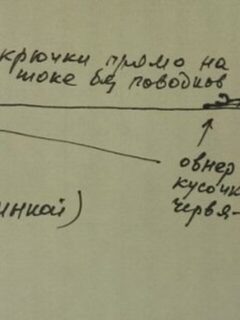 крючки прямо на
токе без поводков
овнер
кусочк
червя-
инкой)